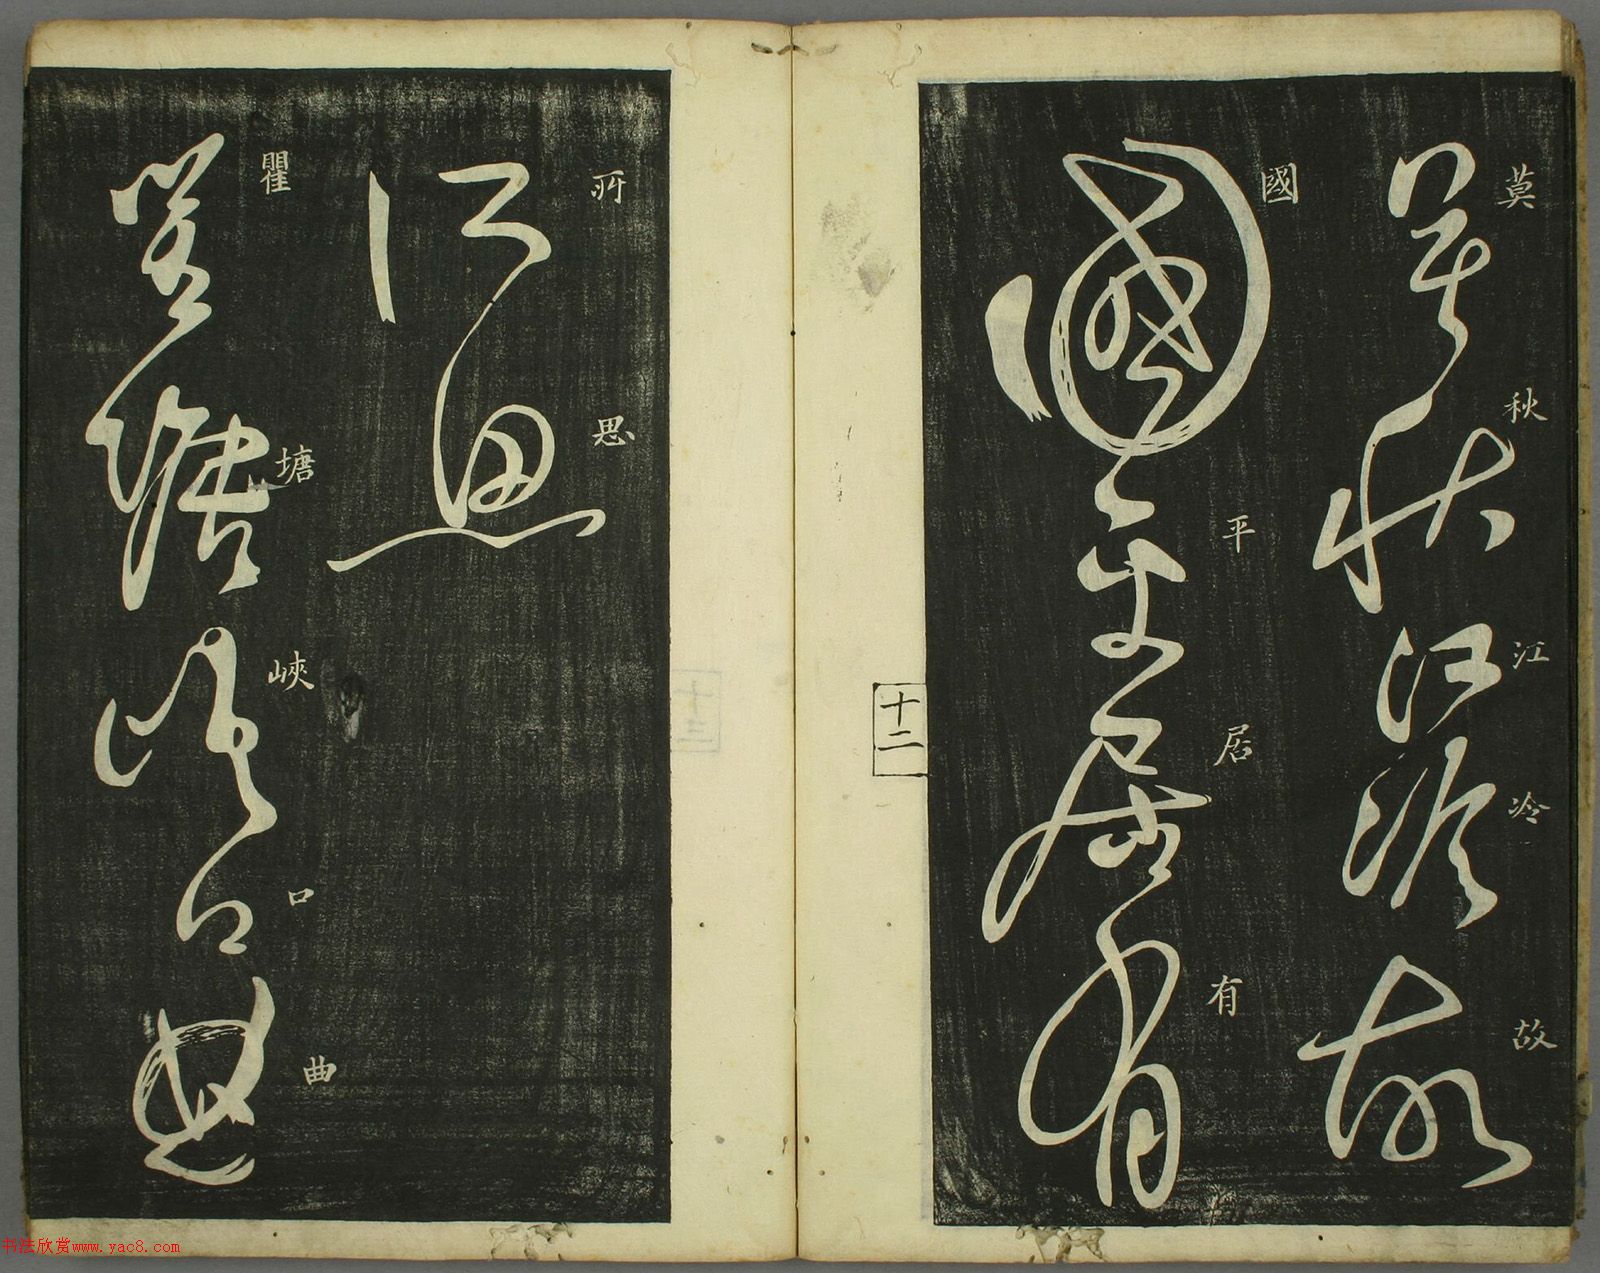 莫秋江冷故
國平居有
十二
所思
瞿塘峽口曲
十三
书法欣赏www.yac8.com